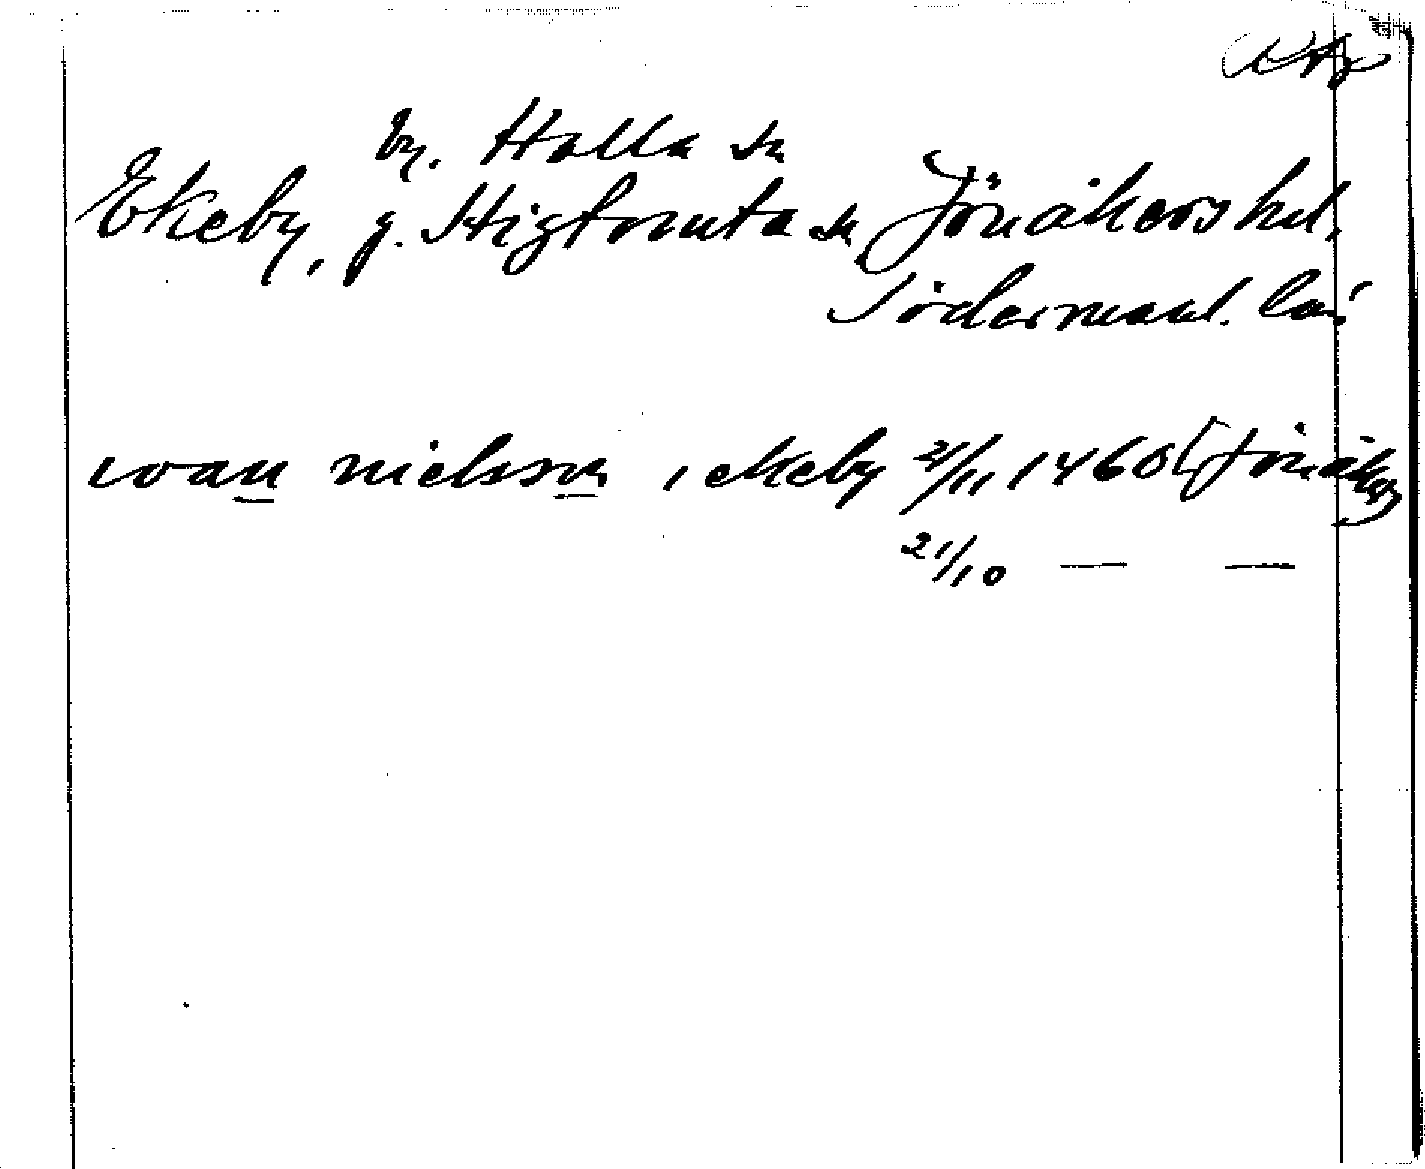 by. Halla sn
Ekeby, g. Stigtomta sn Jönåkers hd.
Södermanl. län
ivan nielsson i ekeby 21/11 1460 [Jönåker
21/10 — —